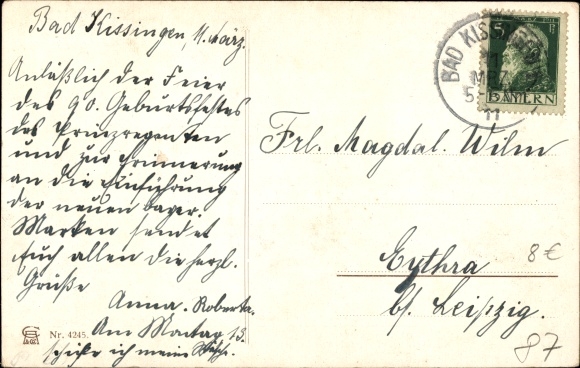 Bad Kissingen, 11. März.
Anläßlich der Feier
des 90. Geburtsfestes
des Prinzregenten
und zur Erinnerung
an die Einführung
der neuen bayer.
Marken sendet
Euch allen die herzl.
Grüße
Anna. Roberta.
Am Montag 13.
schicke ich meine Wäsche.
Nr. 4245.
BAD KISSINGEN
11
MRZ
5-
11
5
BAYERN
Frl. Magdal. Wilm
Eythra
b/ Leipzig.
8 €
87